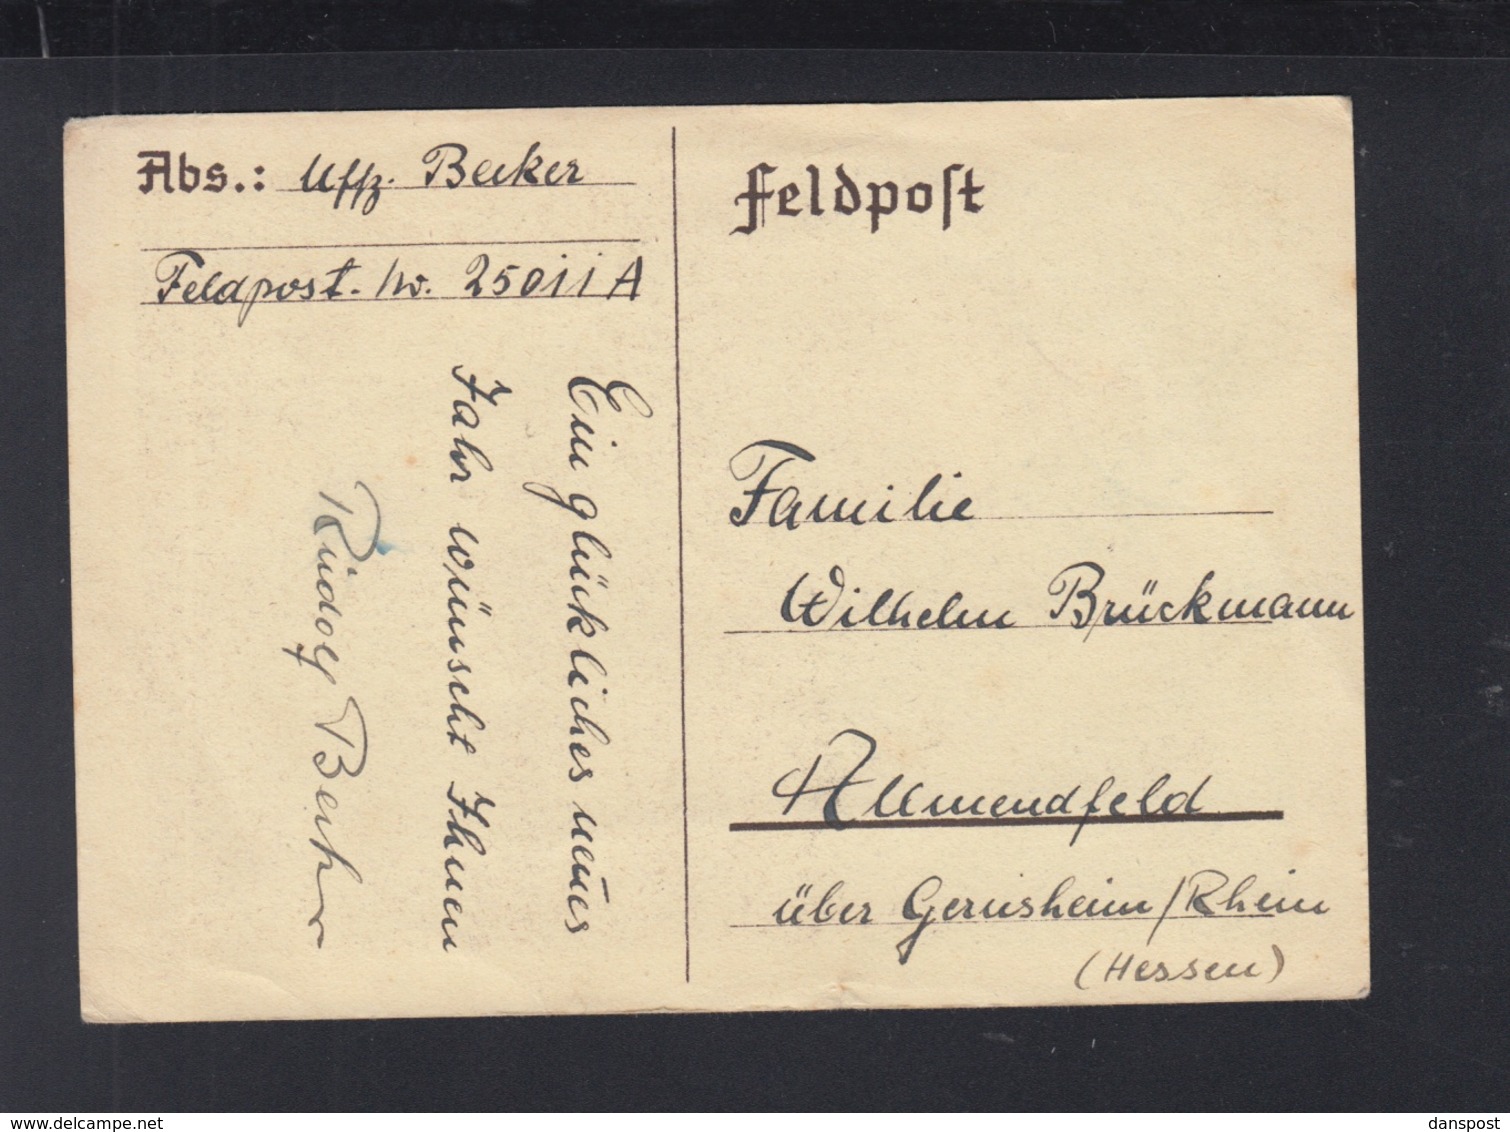 Abs.: Uffz. Becker
Feldpost. No. 25011 A
Ein glückliches neues
Jahr wünscht Ihnen
Rudolf Becker
Feldpost
Familie
Wilhelm Brückmann
Allmendfeld
über Gernsheim/Rhein
(Hessen)
delcampe.net
danspost